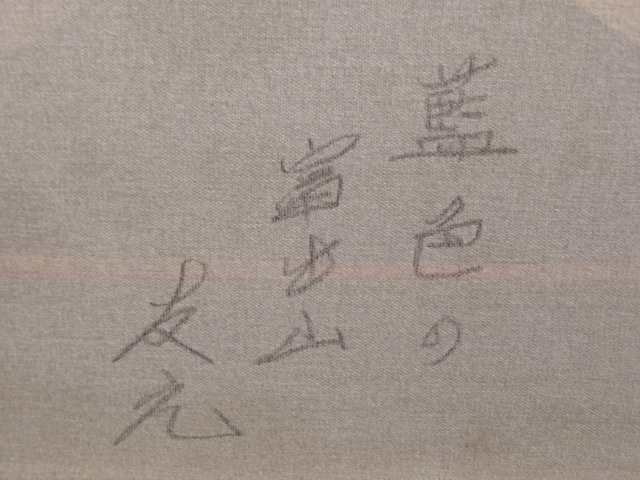 藍色の
富士山
友元